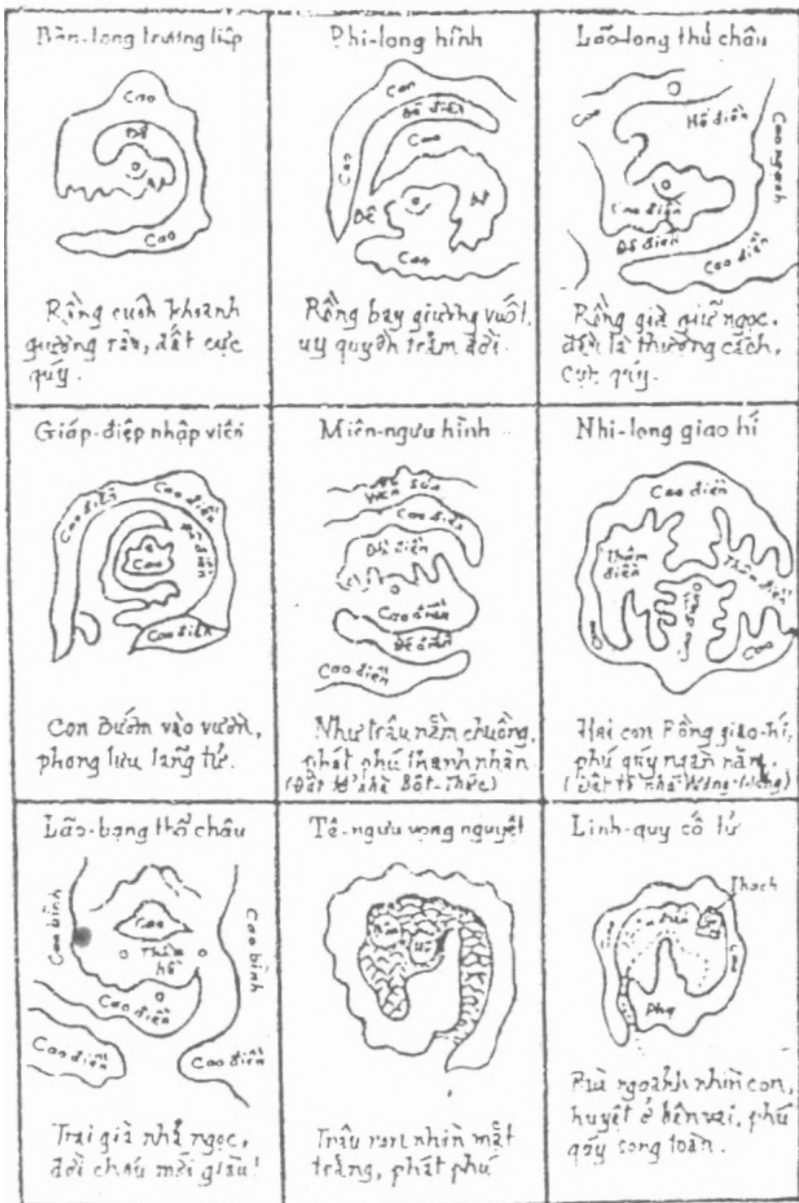 Bàn-long trương liệp
Cao
Đê
Cao
Rồng cuốn khoanh
giương râu, đất cực
quý.
Phi-long hình
Cao
Đê điền
Cao
Cao
Đê
Đê
Cao
Rồng bay giương vuốt,
uy quyền trăm đời.
Lão-long thủ châu
Cao
Hồ điền
Cao ngoành
Cao điền
Đê điền
Cao điền
Rồng già giữ ngọc,
đều là thượng cách,
cực quý.
Giáp-điệp nhập viên
Cao điền
Cao điền
Cao
Cao điền
Con Bướm vào vườn,
phong lưu lãng tử.
Miên-ngưu hình
Sơn
Cao điền
Đê điền
Cao điền
Đê điền
Cao điền
Như trâu nằm chuồng,
phát phú thanh nhàn
(Đất tổ nhà Bột-Thức)
Nhi-long giao hí
Cao điền
Thâm
điền
Thâm điền
Cao
Hai con Rồng giao-hí,
phú quý ngàn năm.
(Đất tổ nhà
Lão-bạng thổ châu
Cao bình
Cao
Thâm
hồ
Cao bình
Cao điền
Cao điền
Cao điền
Trai già nhả ngọc,
đời cháu mới giầu!
Tê-ngưu vọng nguyệt
Trâu nhìn mặt
trăng, phát phú
Linh-quy cố tử
Thạch
Phụ
Rùa ngoảnh nhìn con,
huyệt ở bên vai, phú
quý song toàn.